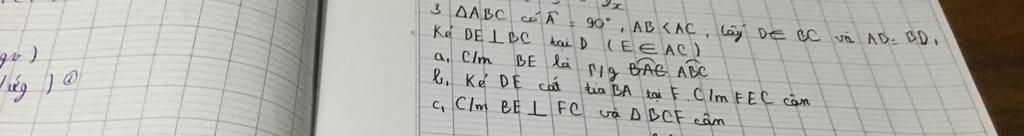 gv)
ứng) ①
3 ΔABC có Â = 90°, AB < AC, lấy D ∈ BC và AD = BD,
Kẻ DE ⊥ BC tại D (E ∈ AC)
a, C/m BE là p/g ABC
b, Kẻ DE cắt tia BA tại F. C/m FEC cân
c, C/m BE ⊥ FC và Δ BCF cân